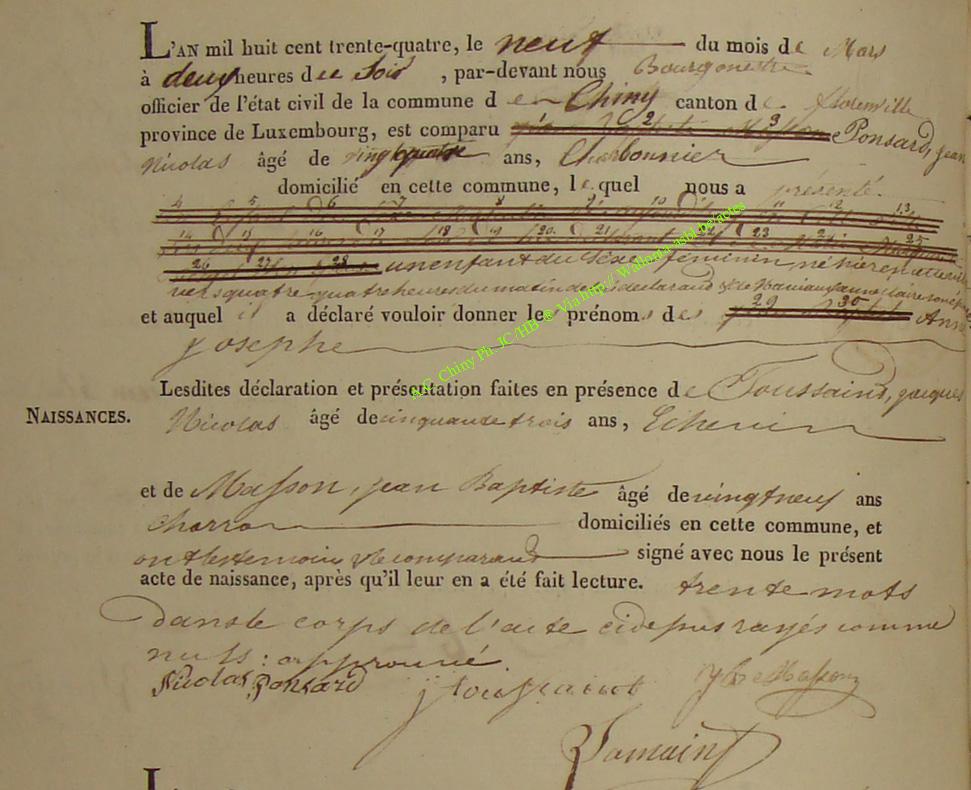 L'AN mil huit cent trente-quatre, le neuf du mois de Mars
à deux heures de Soir, par-devant nous Bourgmestre
officier de l'état civil de la commune de Chiny canton de florenville
province de Luxembourg, est comparu 2 3 Ponsard, jean
Nicolas âgé de vingt quatre ans, Charbonnier
domicilié en cette commune, lequel nous a présenté
4 5 6 7 8 9 10 11 12 13
14 15 16 17 18 19 20 21 22 23 24 25
26 27 28 un enfant du Sexe féminin, né hier
vers quatre quatre heures du matin de lui déclarand & de
et auquel il a déclaré vouloir donner les prénoms de 29 30 Anne
josephe
Lesdites déclaration et présentation faites en présence de Toussaind, jacques
NAISSANCES.
Nicolas âgé de cinquande trois ans, Echevin
et de Masson, jean Baptiste âgé de vingt neuf ans
charron domiciliés en cette commune, et
ont les temoins & le comparand signé avec nous le présent
acte de naissance, après qu'il leur en a été fait lecture. trente mots
dans le corps de l'acte cidepus rayés comme
nuls : approuvé.
Nicolas Ponsard j toussaint jB Masson
A.C. Chiny Ph. JC /HB ® Via http:// Wallonia-asbl.be/actes
L